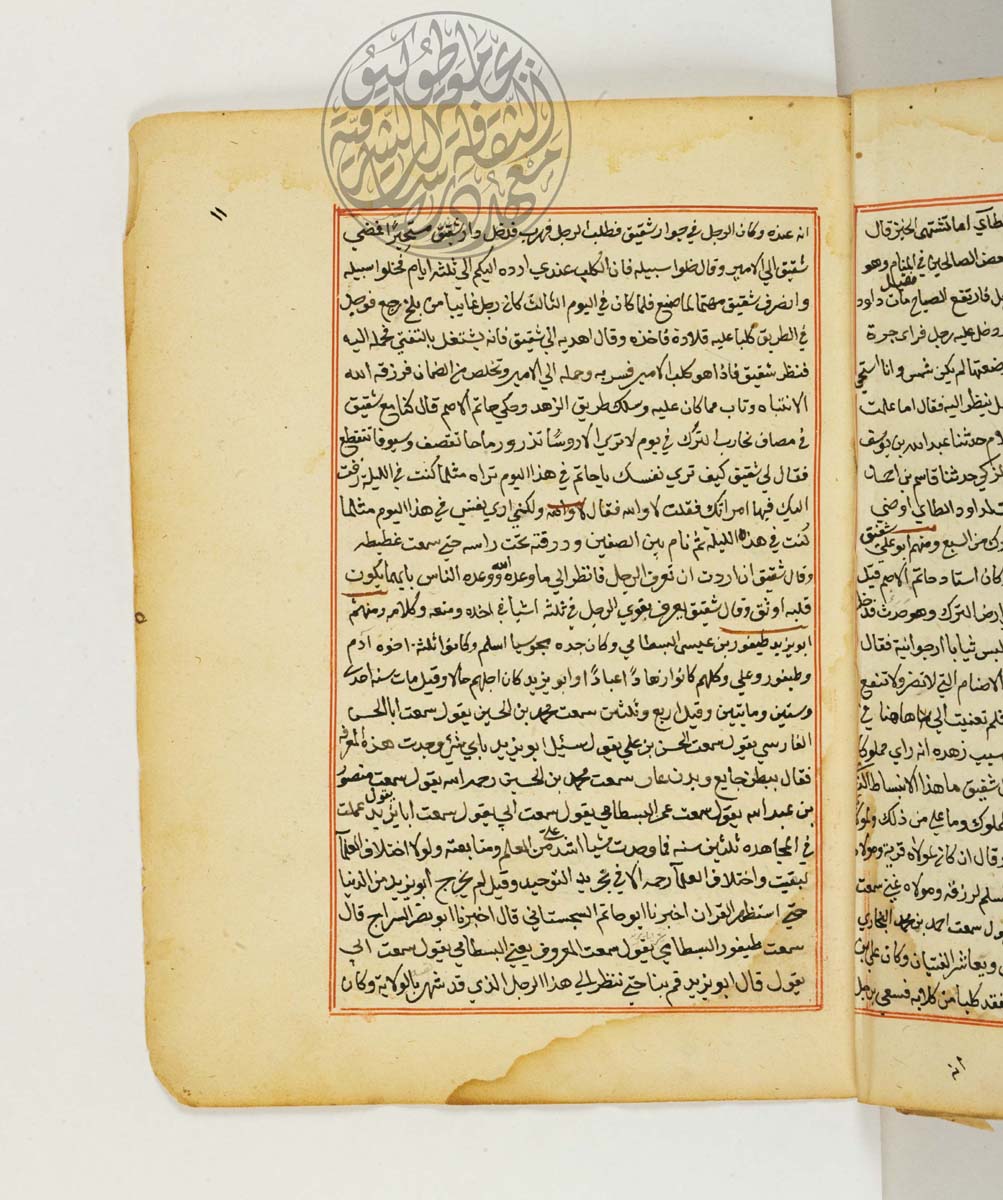 ١١
انه عنده وكان الرجل في جوار شقيق فطلب الرجل فهرب فدخل دار شقيق مستجيرا فمضى
شقيق الي الامير وقال خلوا سبيله فان الكلب عندي ارده اليكم الي ثلثة ايام فخلوا سبيله
وانصرف شقيق مهتما لما صنع فلما كان في اليوم الثالث كان رجل غايبا من بلخ رجع فوجد
في الطريق كلبا عليه قلادة فاخذه وقال اهديه الي شقيق فانه يشتغل بالتفتي فحمله اليه
فنظر شقيق فاذا هو كلب الامير فسر به وحمله الي الامير وتخلص من الضمان فرزقه الله
الانتباه وتاب مما كان عليه وسلك طريق الزهد وحكي حاتم الاصم قال كنا مع شقيق
في مصاف نحارب الترك في يوم لا تري الا روسا تذر ورماحا تقصف وسيوفا تنقطع
فقال لي شقيق كيف تري نفسك يا حاتم في هذا اليوم تراه مثلما كنت في الليلة زفت
اليك فيها امراتك فقلت لا والله فقال لا والله ولكني اري نفسي في هذا اليوم مثلما
كنت في هذه الليلة ثم نام بين الصفين ودرقته تحت راسه حتي سمعت غطيطه
وقال شقيق ان اردت ان تعرف الرجل فانظر الي ما وعده الله ووعده الناس بايهما يكون
قلبه اوثق وقال شقيق يعرف تقوي الرجل في ثلثة اشيا في اخذه ومنعه وكلامه ومنهم
ابو يزيد طيفور بن عيسى البسطامي وكان جده مجوسيا اسلم وكانوا ثلثة اخوة ادم
وطيفور وعلي وكلهم كانوا زهادا عبادا وابو يزيد كان اجلهم حالا وقيل مات سنه احدي
وستين ومايتين وقيل اربع وثلثين سمعت محمد بن الحسين يقول سمعت ابا الحسن
الفارسي يقول سمعت الحسن بن علي يقول سئيل ابو يزيد باي شئ وجدت هذه المعرفة
فقال ببطن جايع وبدن عار سمعت محمد بن الحسين رحمه الله يقول سمعت منصور
بن عبد الله يقول سمعت عمي البسطامي يقول سمعت ابي يقول سمعت ابا يزيد يقول عملت
في المجاهده ثلثين سنه فما وجدت شيا اشد علي من العلم ومتابعته ولولا اختلاف العلمآ
لبقيت واختلاف العلمآ رحمه الا في تجريد التوحيد وقيل لم يخرج ابو يزيد من الدنيا
حتي استظهر القران اخبرنا ابو حاتم السجستاني قال اخبرنا ابو نصر السراج قال
سمعت طيفور البسطامي يقول سمعت المعروف يعني البسطامي يقول سمعت ابي
يقول قال ابو يزيد قم بنا حتي ننظر الي هذا الرجل الذي قد شهر بالولاية وكان
طاي اما تشتهي الخبز قال
بعض الصالحين في المنام وهو
فقيل
فارتفع الصياح مات داود
ودخل عليه رجل فراي جرة
وضعتها لم يكن شمس وانا استحي
ينظر اليه فقال اما علمت
حدثنا عبد الله بن يوسف
المزكي حدثنا قاسم بن احمد
لداود الطاي اوصني
من السبع ومنهم ابو علي شقيق
كان استاد حاتم الاصم قيل
ارض الترك وهو حدث فدخل
لبس ثيابا ارجوانية فقال
الاصنام التي لا تضر ولا تنفع
فلم تعنيت الي هاهنا في
سبب زهده انه راي مملوكا
شقيق ما هذا الانبساط الذي
المملوك وما علي من ذلك ولمولاي
وقال ان كان لمولاه قرية ومولاه
مسلم لرزقه ومولاه غني سمعت
يقول سمعت احمد بن محمد البخاري
ويعاشر الفتيان وكان علي بن
فقد كلبا من كلابه فسعي برجل
انه
معهد الثقافة والدراسات الشرقية
جامعة طوكيو